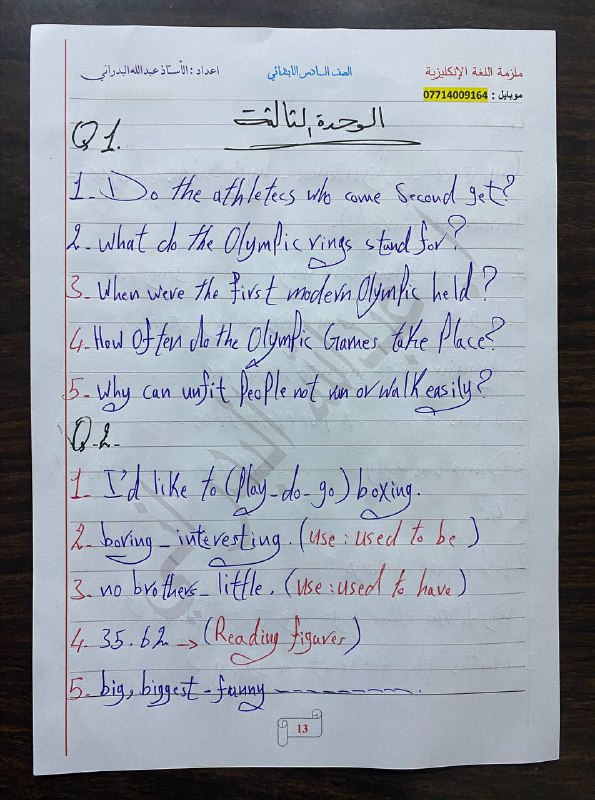 ملزمة اللغة الإنكليزية الصف السادس الابتدائي اعداد : الأستاذ عبدالله البدراني
موبايل : 07714009164
الوحدة الثالثة
Q1.
1- Do the athletecs who come second get?
2- What do the Olympic rings stand for?
3- When were the first modern Olympic held?
4- How Often do the Olympic Games take Place?
5- Why can unfit People not run or walk easily?
Q-2-
1- I'd like to (Play-do-go) boxing.
2- boring - interesting. (use: used to be)
3- no brothers - little. (use: used to have)
4- 35.62 → (Reading figures)
5- big, biggest - funny ---------.
13